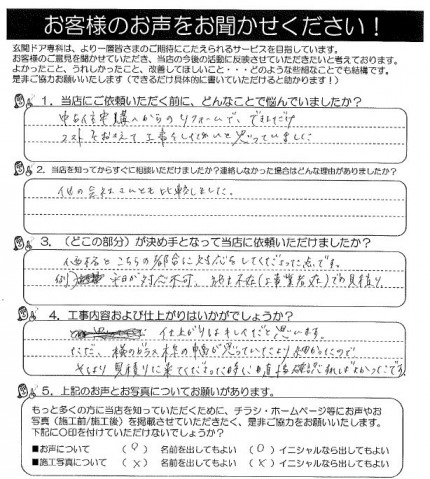 お客様のお声をお聞かせください！
玄関ドア専科は、より一層皆さまのご期待にこたえられるサービスを目指しています。
お客様のご意見を聞かせていただき、当店の今後の活動に反映させていただきたいと考えております。
よかったこと、うれしかったこと、改善してほしいこと・・・どのような些細なことでも結構です。
是非ご協力お願いいたします（できるだけ具体的に書いていただけると助かります！）
1．当店にご依頼いただく前に、どんなことで悩んでいましたか？
中古住宅購入からのリフォームで、できるだけ
コストをおさえて工事をしたいと思っていました
2．当店を知ってからすぐに相談いただけましたか？連絡しなかった場合はどんな理由がありましたか？
他の会社さんとも比較しました。
3．（どこの部分）が決め手となって当店に依頼いただけましたか？
他社とこちらの都合に対応してくださった点です。
例） 日対応不可、施主不在（工事業者在）での見積り
4．工事内容および仕上がりはいかがでしょうか？
仕上がりはキレイだと思います。
ただ、横のガラス枠の幅が思っていたより
見積りに来てくださった時に 確認すればよかったです
5．上記のお声とお写真についてお願いがあります。
もっと多くの方に当店を知っていただくために、チラシ・ホームページ等にお声やお
写真（施工前/施工後）を掲載させていただきたく、是非ご協力をお願いいたします。
下記に〇印を付けていただけないでしょうか？
■お声について （○） 名前を出してもよい （○）イニシャルなら出してもよい
■施工写真について （×） 名前を出してもよい （×）イニシャルなら出してもよい